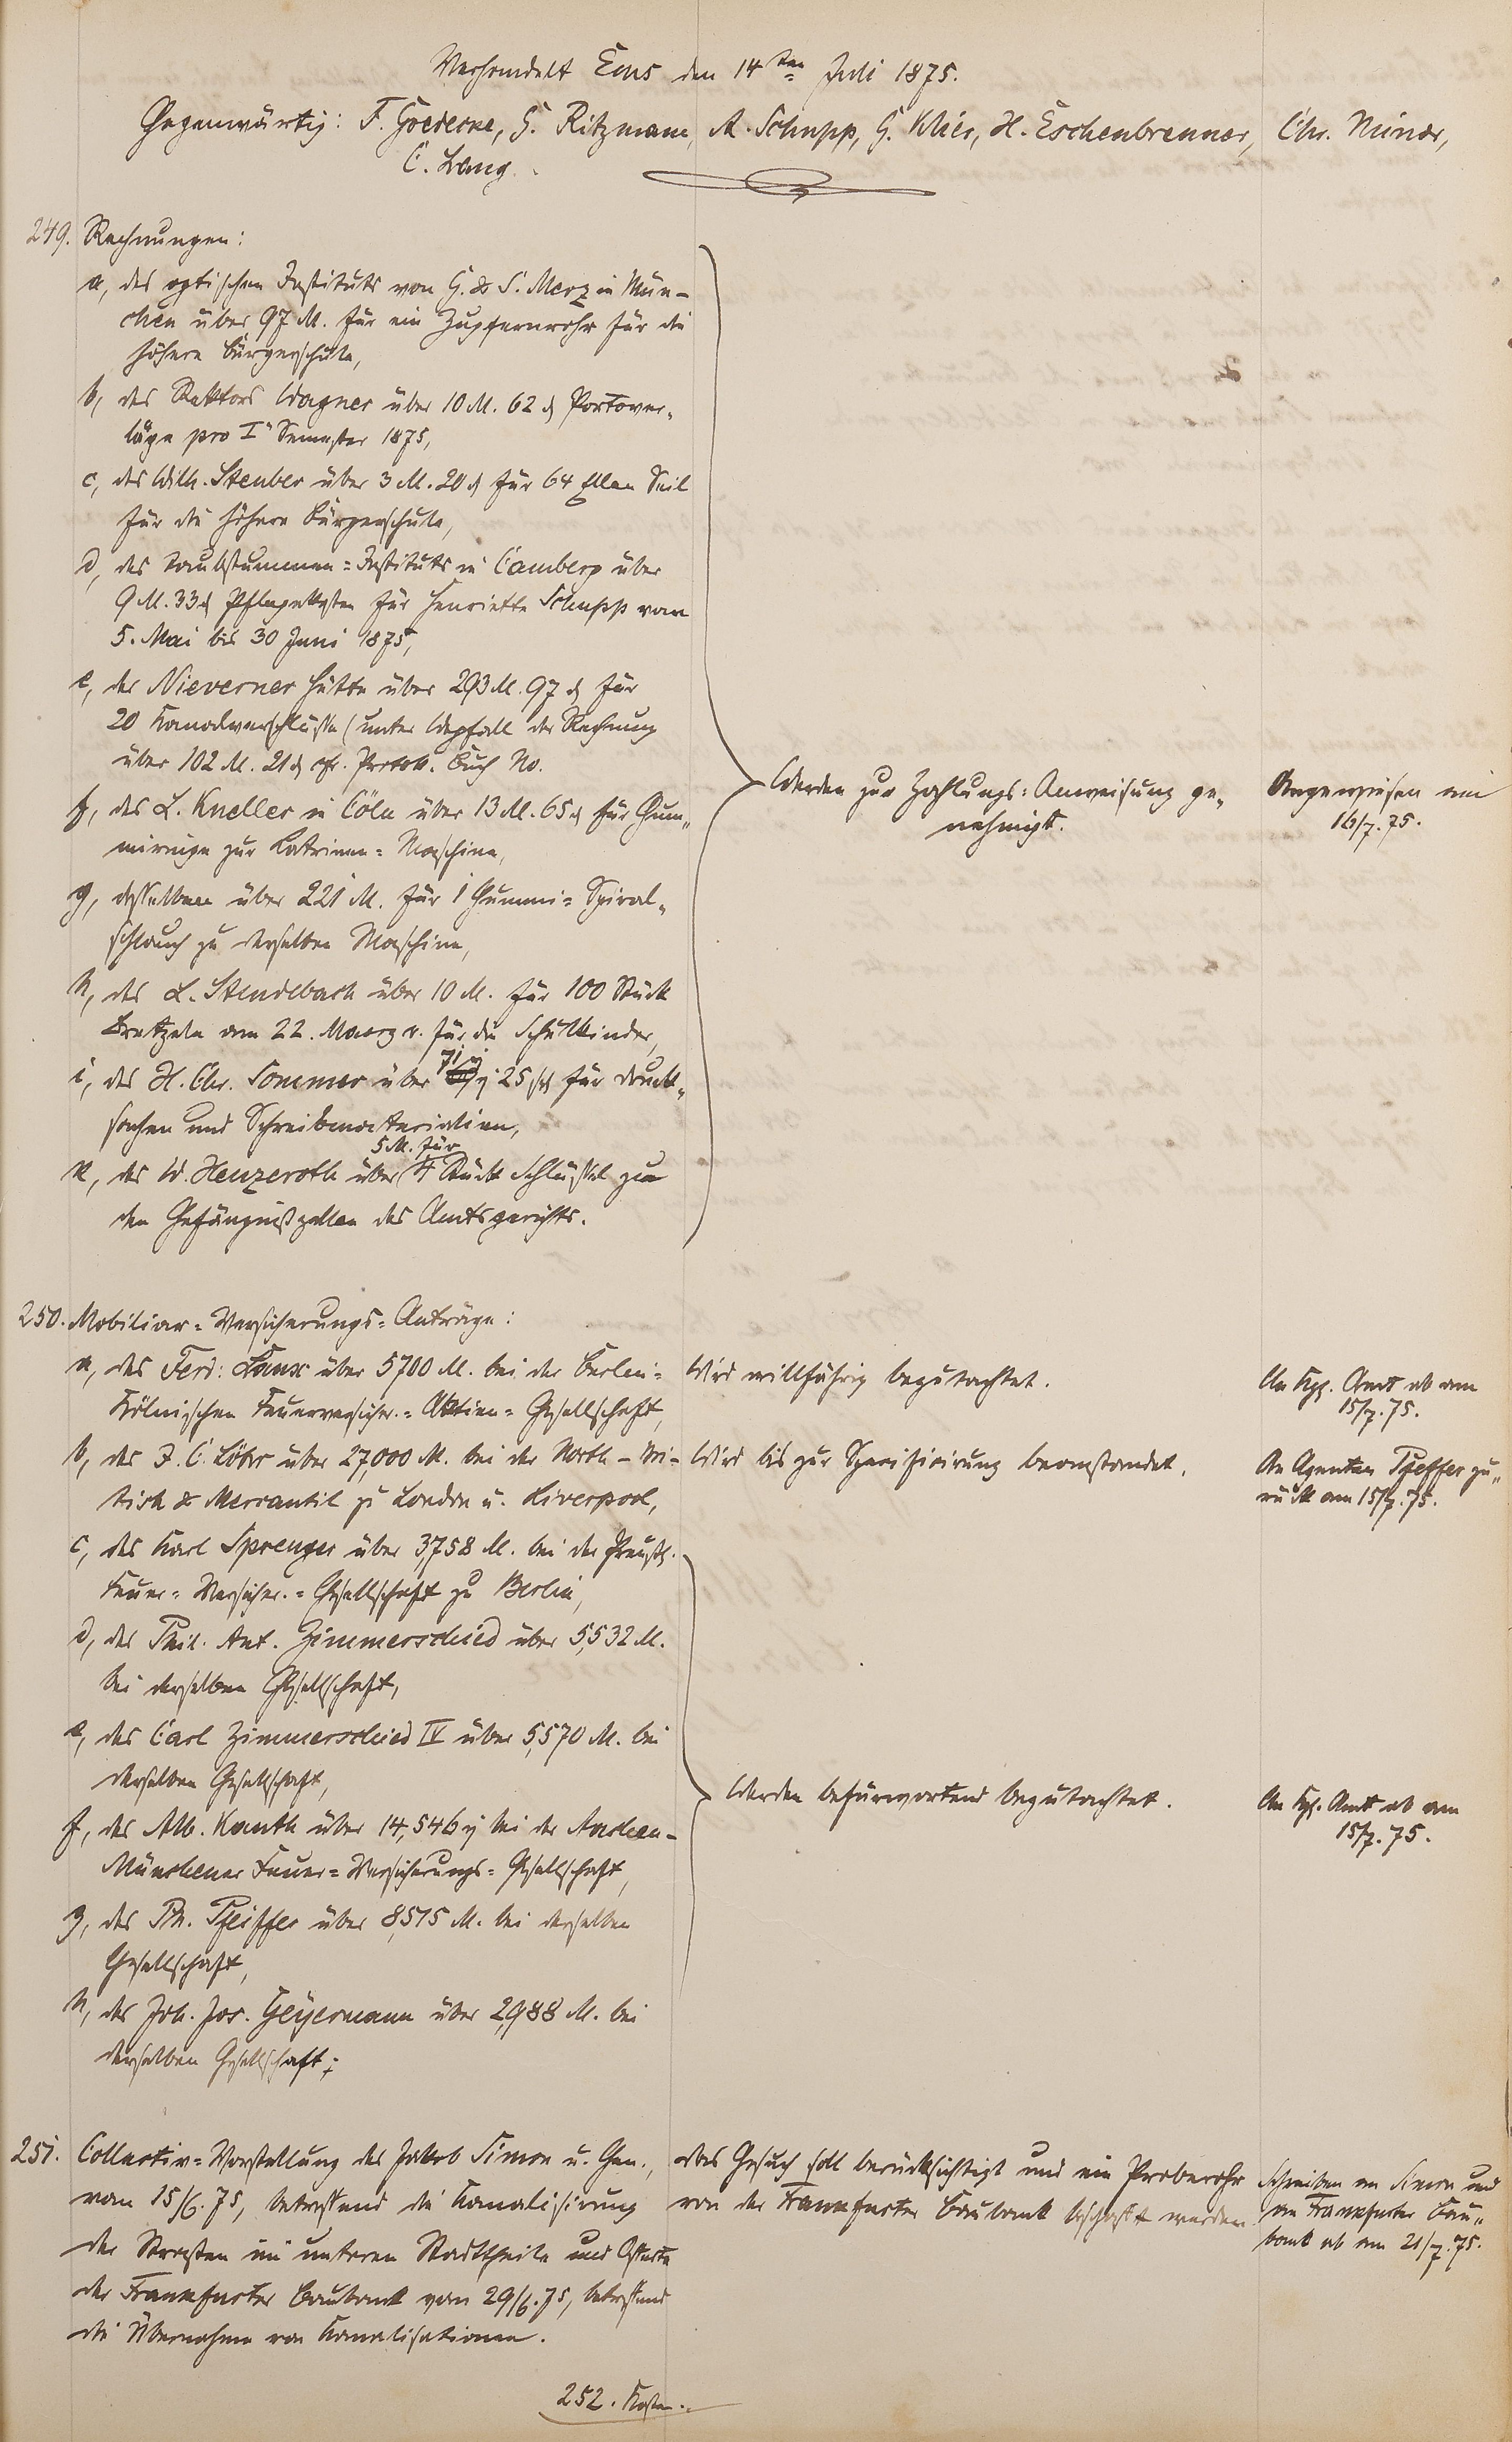 Verhandelt Ems den 14ten Juli 1875.
Gegenwärtig: F. Goedecke, G. Ritzmann, A. Schupp, G. Klier, H. Eschenbrenner, Chr. Minor,
C. Lang.
249. Rechnungen:
a, des optischen Instituts von G. & S. Merz in Mün-
chen über 97 M. für ein Zugfernrohr für die
höhere Bürgerschule,
b, des Rektors Wagner über 10 M. 62 ₰ Portover-
läge pro I. Semester 1875,
c, des Wilh. Steuber über 3 M. 20 ₰ für 64 Ellen Seil
für die höhere Bürgerschule,
d, des Taubstummen=Instituts in Camberg über
9 M. 33 ₰ Pflegekosten für Henriette Schupp vom
5. Mai bis 30 Juni 1875,
e, der Nieverner Hütte über 293 M. 97 ₰ für
20 Kanalverschlüsse (unter Wegfall der Rechnung
über 102 M. 21 ₰ cfr. Protok. Buch No.
f, des L. Kneller in Cöln über 13 M. 65 ₰ für Gum-
miringe zur Latrinen=Maschine,
g, desselben über 221 M. für 1 Gummi=Spiral-
schlauch zu derselben Maschine,
h, des L. Stendebach über 10 M. für 100 Stück
Bretzeln am 22. Maerz c. für die Schulkinder,
i, des H. Chr. Sommer über 71 25 ₰ für Druck-
sachen und Schreibmaterialien,
k, des W. Henzeroth über 5 M. für 4 Stück Schlüssel zu
den Gefängnißzellen des Amtsgerichts.
Werden zur Zahlungs=Anweisung ge-
nehmigt.
Angewiesen am
16/7. 75.
250. Mobiliar=Versicherungs=Anträge:
a, des Ferd. Laux über 5700 M. bei der Berlin=
Kölnischen Feuerversicher.=Aktien=Gesellschaft,
Wird willfährig begutachtet.
An Kgl. Amt ab am
15/7. 75.
b, des J. C. Löhr über 27,000 M. bei der North-Bri-
tish & Mercantil zu London u. Liverpool,
Wird bis zur Specificirung beanstandet.
An Agenten Pfeffer zu-
rück am 15/7. 75.
c, des Karl Sprenger über 3,758 M. bei der Preuß.
Feuer=Versicher.=Gesellschaft zu Berlin,
d, des Phil. Ant. Zimmerschied über 5,532 M.
bei derselben Gesellschaft,
e, des Carl Zimmerschied IV über 5,570 M. bei
derselben Gesellschaft,
f, des Alb. Kauth über 14,546 bei der Aachen-
Münchener Feuer=Versicherungs=Gesellschaft,
g, des Ph. Pfeiffer über 8,515 M. bei derselben
Gesellschaft,
h, des Joh. Jos. Geyermann über 2,988 M. bei
derselben Gesellschaft;
Werden befürwortend begutachtet.
An Kgl. Amt ab am
15/7. 75.
251. Collectiv=Vorstellung des Jakob Simon u. Gen.,
vom 15/6. 75, betreffend die Kanalisirung
der Straßen im unteren Stadttheile und Offerte
der Frankfurter Baubank vom 29/6. 75, betreffend
die Übernahme von Kanalisationen.
Das Gesuch soll berücksichtigt und ein Proberohr
von der Frankfurter Baubank beschafft werden.
Schreiben an Simon und
an Frankfurter Bau-
bank ab am 21/7. 75.
252. Kosten.